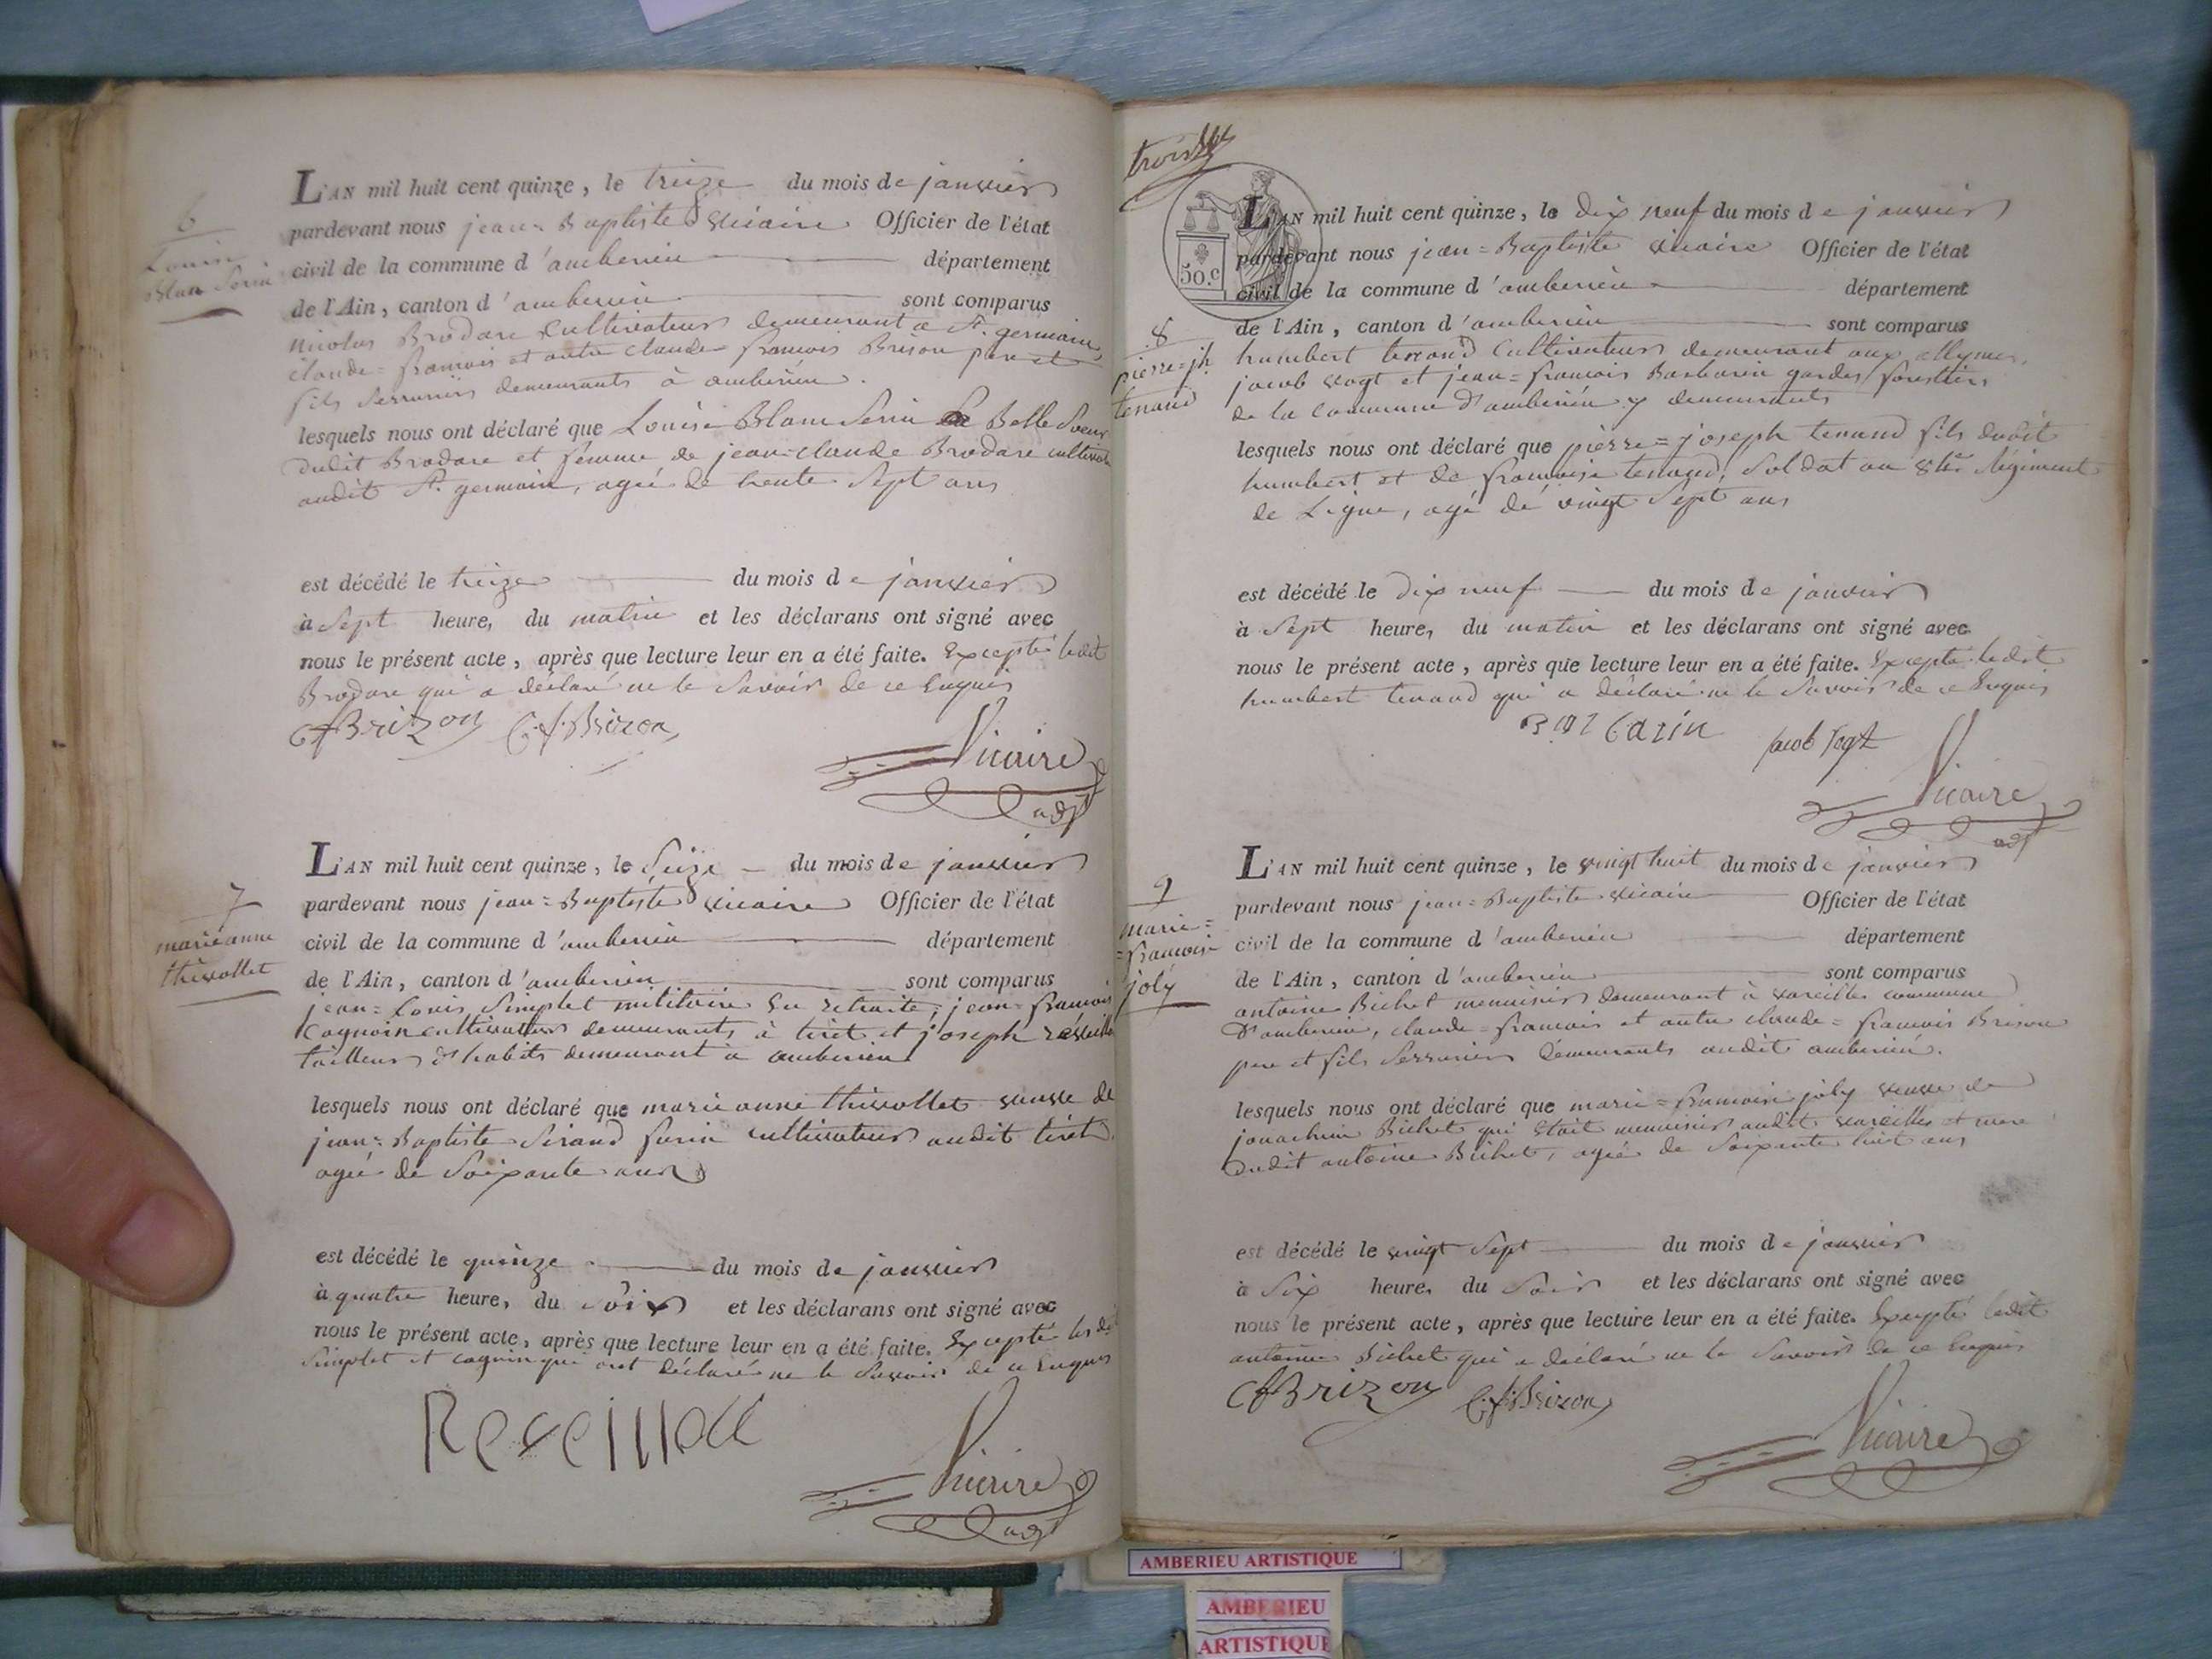 6
Louise
Blan Serin
L'AN mil huit cent quinze, le treize du mois de janvier
pardevant nous jean=Baptiste vicaire Officier de l'état
civil de la commune d'amberieu département
de l'Ain, canton d'amberieu sont comparus
nicolas Brodare cultivateur demeurant a St. germain,
claude=francois et autre claude francois Brison pere et
fils serruriers demeurants à amberieu.
lesquels nous ont déclaré que Louise Blanc Serin Belle Soeur
dudit Brodare et femme de jean-claude Brodare cultivateur
audit St. germain, agée de trente Sept ans
est décédé le treize du mois de janvier
à Sept heure, du matin et les déclarans ont signé avec
nous le présent acte, après que lecture leur en a été faite. Excepté ledit
Brodare qui a déclaré ne le Savoir de ce Enquis
CfBrizon C.f.Brizon
Vicaire
adjt
7
marie anne
thevollet
L'AN mil huit cent quinze, le Seize du mois de janvier
pardevant nous jean=Baptiste vicaire Officier de l'état
civil de la commune d'amberieu département
de l'Ain, canton d'amberieu sont comparus
jean=Louis Simplet militaire En retraite, jean=francois
Cognoin cultivateur demeurants à tiret et joseph réveillet
tailleur d'habits demeurant à amberieu
lesquels nous ont déclaré que marie anne thevollet veuve de
jean=Baptiste Sirand cultivateur audit tiret
agée de Soixante ans
est décédé le quinze du mois de janvier
à quatre heure, du Soir et les déclarans ont signé avec
nous le présent acte, après que lecture leur en a été faite. Excepté les dt
Simplet et cognoin qui ont déclaré ne le Savoir de ce Enquis
Vicaire
adjt
trois
50.c
8
pierre=jh
tenand
L'AN mil huit cent quinze, le dix neuf du mois de janvier
pardevant nous jean=Baptiste vicaire Officier de l'état
civil de la commune d'amberieu département
de l'Ain, canton d'amberieu sont comparus
humbert tenand Cultivateur demeurant aux allymes,
jacob vogt et jean=francois Barbarin gardes forestiers
de la commune d'amberieu y demeurants
lesquels nous ont déclaré que pierre=joseph tenand fils dudit
humbert et de francoise tenand, Soldat au Régiment
de Ligne, agé de vingt Sept ans
est décédé le dix neuf du mois de janvier
à Sept heure, du matin et les déclarans ont signé avec
nous le présent acte, après que lecture leur en a été faite. Excepté ledit
humbert tenand qui a déclaré ne le Savoir de ce Enquis
Jacob Vogt
Vicaire
adjt
9
marie=
=francoise
joly
L'AN mil huit cent quinze, le vingt huit du mois de janvier
pardevant nous jean=Baptiste vicaire Officier de l'état
civil de la commune d'amberieu département
de l'Ain, canton d'amberieu sont comparus
antoine Bichet menuisier demeurant à vareilles commune
d'amberieu, claude=francois et autre claude=francois Brison
pere et fils Serruriers demeurants audit amberieu.
lesquels nous ont déclaré que marie=francoise joly veuve de
jouachim Bichet qui était menuisier audit vareilles et mere
dudit antoine Bichet, agée de Soixante huit ans
est décédé le vingt Sept du mois de janvier
à Six heure, du Soir et les déclarans ont signé avec
nous le présent acte, après que lecture leur en a été faite. Excepté ledit
antoine Bichet qui a déclaré ne le Savoir de ce Enquis
CfBrizon C.f.Brizon
Vicaire
AMBERIEU ARTISTIQUE
AMBERIEU
ARTISTIQUE